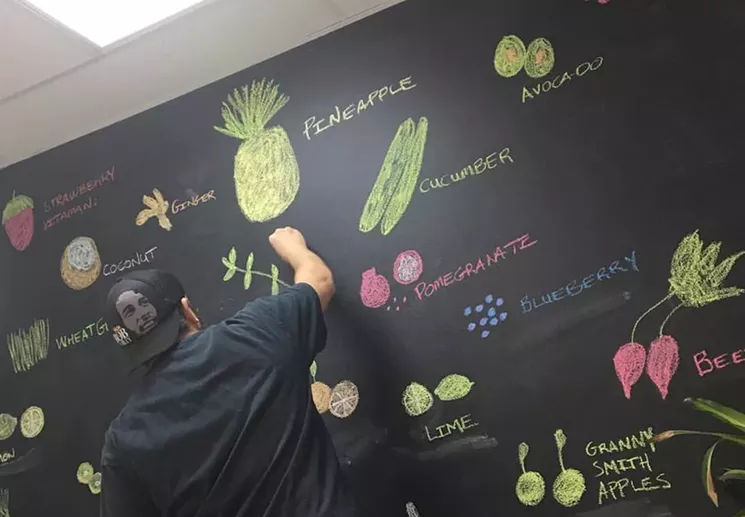 AVOCADO
PINEAPPLE
CUCUMBER
STRAWBERRY
VITAMIN:
GINGER
COCONUT
POMEGRANATE
BLUEBERRY
WHEATG
BEE
LIME
GRANNY
SMITH
APPLES